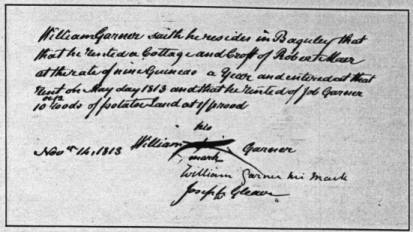 William Garner saith he resides in Baguley that
that he rented a Cottage and Croft of Robert Marr
at the rate of nine Guineas a Year and entered at that
Rent on May day 1813 and that he rented of Job Garner
10 Roods of potatoe Land at 1/ prood
his
Novr 14, 1813 William Garner
mark
William Garner his Mark
Joseph Gleave